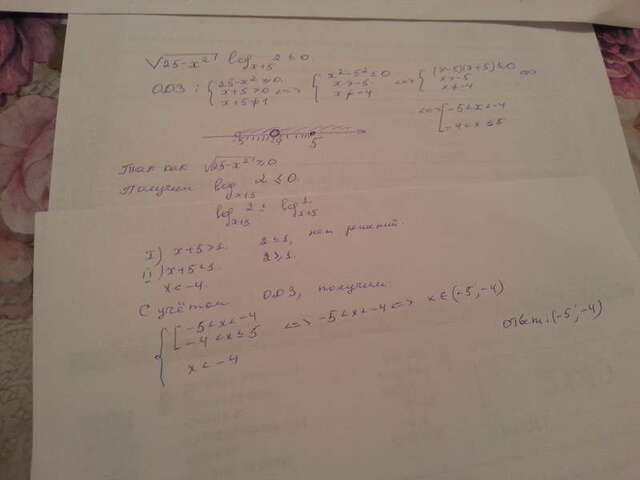 √25-x² log x+5 2 ≤ 0
ОДЗ: { 25-x² ≥ 0 x+5 > 0 x+5 ≠ 1 <=> { x²-5² ≤ 0 x > -5 x ≠ -4 <=> { (x-5)(x+5) ≤ 0 x > -5 x ≠ -4 <=>
<=> [ -5 < x < -4 -4 < x ≤ 5
Так как √25-x² ≥ 0
Получим log x+5 2 ≤ 0.
log x+5 2 ≤ log x+5 1
x+5 > 1. 2 ≤ 1, нет решений.
x+5 < 1. 2 ≥ 1.
x < -4.
С учётом ОДЗ, получим
{ [ -5 < x < -4 -4 < x ≤ 5 x < -4 <=> -5 < x < -4 <=> x ∈ (-5; -4)
Ответ: (-5; -4)